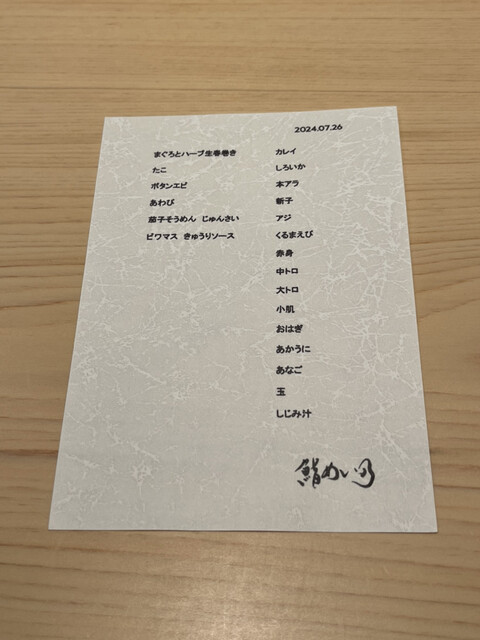 2024.07.26
まぐろとハーブ生春巻き
たこ
ボタンエビ
あわび
茄子そうめん じゅんさい
ビワマス きゅうりソース
カレイ
しろいか
本アラ
新子
アジ
くるまえび
赤身
中トロ
大トロ
小肌
おはぎ
あかうに
あなご
玉
しじみ汁